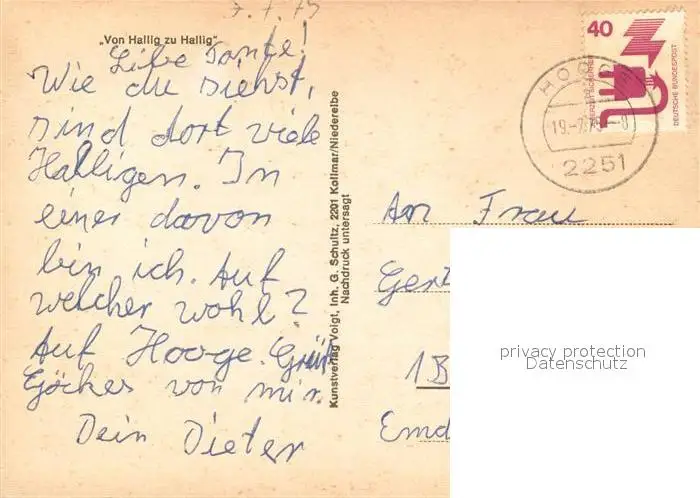 7.7.75
„Von Hallig zu Hallig"
Liebe Tante!
Wie du siehst,
sind dort viele
Halligen. In
einer davon
bin ich. Auf
welcher wohl?
Auf Hooge. Grüß
Göckes von mir.
Dein Dieter
Kunstverlag Voigt, Inh. G. Schultz, 2201 Kollmar/Niederelbe
Nachdruck untersagt
40
DEUTSCHE BUNDESPOST
HOOGE
19.-7.75-8
2251
An Frau
Gert
1B
Emd
privacy protection
Datenschutz